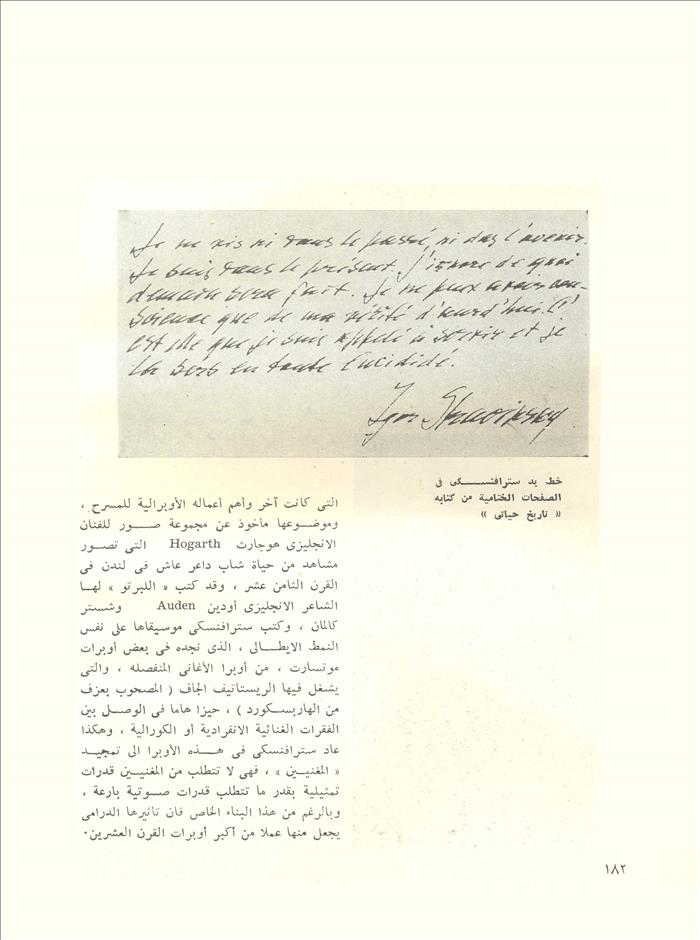 Je ne vis ni dans le passé, ni dans l'avenir.
Je suis dans le présent. J'ignore de quoi
demain sera fait. Je ne peux avoir con-
science que de ma vérité d'aujourd'hui. C'
est elle que je suis appelé à servir et je
la sers en toute lucididé.
Igor Stravinsky
خط يد سترافنسكى فى
الصفحات الختامية من كتابه
« تاريخ حياتى »
التى كانت آخر وأهم أعماله الأوبرالية للمسرح ،
وموضوعها مأخوذ عن مجموعة صور للفنان
الانجليزى هوجارث Hogarth التى تصور
مشاهد من حياة شاب داعر عاش فى لندن فى
القرن الثامن عشر ، وقد كتب « اللبرتو » لها
الشاعر الانجليزى أودين Auden وشستر
كالمان ، وكتب سترافنسكى موسيقاها على نفس
النمط الايطالى ، الذى نجده فى بعض أوبرات
موتسارت ، من أوبرا الأغانى المنفصله ، والتى
يشغل فيها الريستاتيف الجاف ( المصحوب بعزف
من الهاربسكورد ) ، حيزا هاما فى الوصل بين
الفقرات الغنائية الانفرادية أو الكورالية ، وهكذا
عاد سترافنسكى فى هذه الأوبرا الى تمجيد
« المغنيين » ، فهى لا تتطلب من المغنيين قدرات
تمثيلية بقدر ما تتطلب قدرات صوتية بارعة ،
وبالرغم من هذا البناء الخاص فان تأثيرها الدرامى
يجعل منها عملا من أكبر أوبرات القرن العشرين.
١٨٢